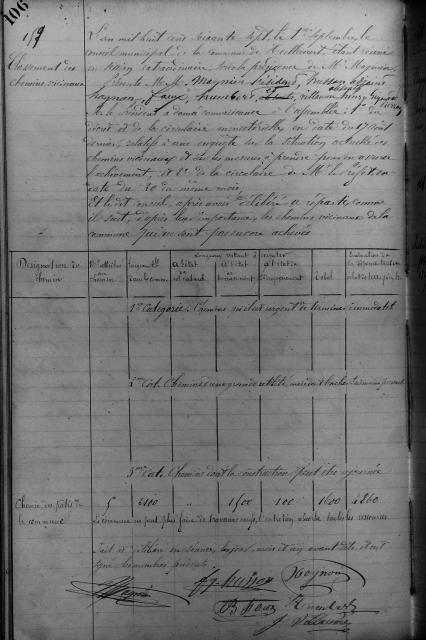 106
119
Classement des
chemins vicinaux
L'an mil huit cent soixante sept, le 1er Septembre, le
conseil municipal de la commune de étant réuni
en session extraordinaire sous la présidence de M. Magnin,
Présents M.M. Magnin Président, husson adjoint
haynon, humbert, villaume henry
M. le Président a donné connaissance à l'assemblée: 1° du
décret et de la circulaire ministérielle en date du 17 août
dernier, relatifs à une enquête sur la situation actuelle des
chemins vicinaux et sur les mesures à prendre pour en assurer
l'achèvement; et 2° de la circulaire de Mr le Préfet en
date du 20 du même mois;
Et ledit conseil, après avoir délibéré a réparti comme
il suit, d'après leur importance, les chemins vicinaux de la
commune qui ne sont pas encore achevés
Désignation du
chemin
Longueur restant à
à l'état
de sol naturel
à l'état de
terrassement
à l'état
d'empierrement
Total
Evaluation de
la dépense
1ere Catégorie. Chemins qu'il est urgent de terminer immédiatement
2me Cat. Chemins d'une grande utilité
3me Cat. Chemins dont la construction peut être ajournée
Chemin du pâtis de
la commune
5 2100 " 1500 100 1600 1260
La commune ne peut plus faire de travaux neufs, l'entretien absorbe toutes les ressources
Fait et délibéré en séance, les jour, mois et an avant dits, et ont
signé les membres présents
Magnin
Husson
Haynon
Humbert
Villaume